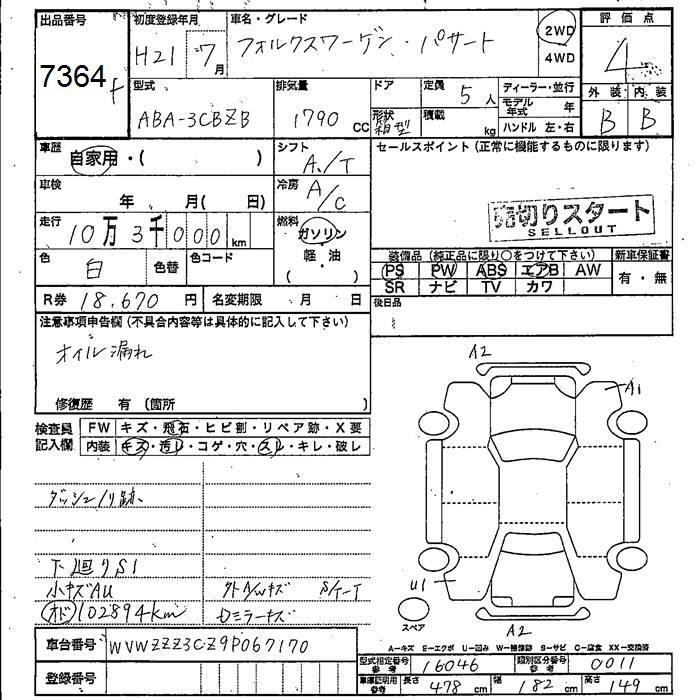 出品番号 初度登録年月 車名・グレード 2WD 評価点
7364 H21 7月 フォルクスワーゲン・パサート 4WD 4
型式 排気量 ドア 定員 5人 ディーラー・並行 外装 内装
ABA-3CBZB 1790 CC 形状 箱型 積載 kg モデル年式 年 B B
ハンドル 左・右
車歴 自家用・( ) シフト A/T セールスポイント(正常に機能するものに限ります)
車検 年 月( 日) 冷房 A/C
走行 10万3千000km 燃料 ガソリン 売切りスタート
SELLOUT
色 白 色替 色コード 軽・油 装備品(純正品に限り○をつけて下さい) 新車保証書
( ) PS PW ABS エアB AW 有・無
R券 18,670円 名変期限 月 日 SR ナビ TV カワ
注意事項申告欄(不具合内容等は具体的に記入して下さい) 後日品
オイル漏れ
修復歴 有 (箇所 )
A2
A1
検査員 FW キズ・飛石・ヒビ割・リペア跡・X要
記入欄 内装 キズ・汚レ・コゲ・穴・スレ・キレ・破レ
ダッシュノリ跡
下廻りS1
小キズAU 外A/Wキズ S/ケース
オド 102894km Dミラーキズ
U1
スペア
A2
車台番号 WVWZZZ3CZ9P067170
A-キズ E-エクボ U-凹み W-補修跡 S-サビ C-腐食 XX-交換済
型式指定番号 参考 16046 類別区分番号 参考 0011
登録番号 車庫証明用 参考 長さ 478cm 幅 182cm 高さ 149cm